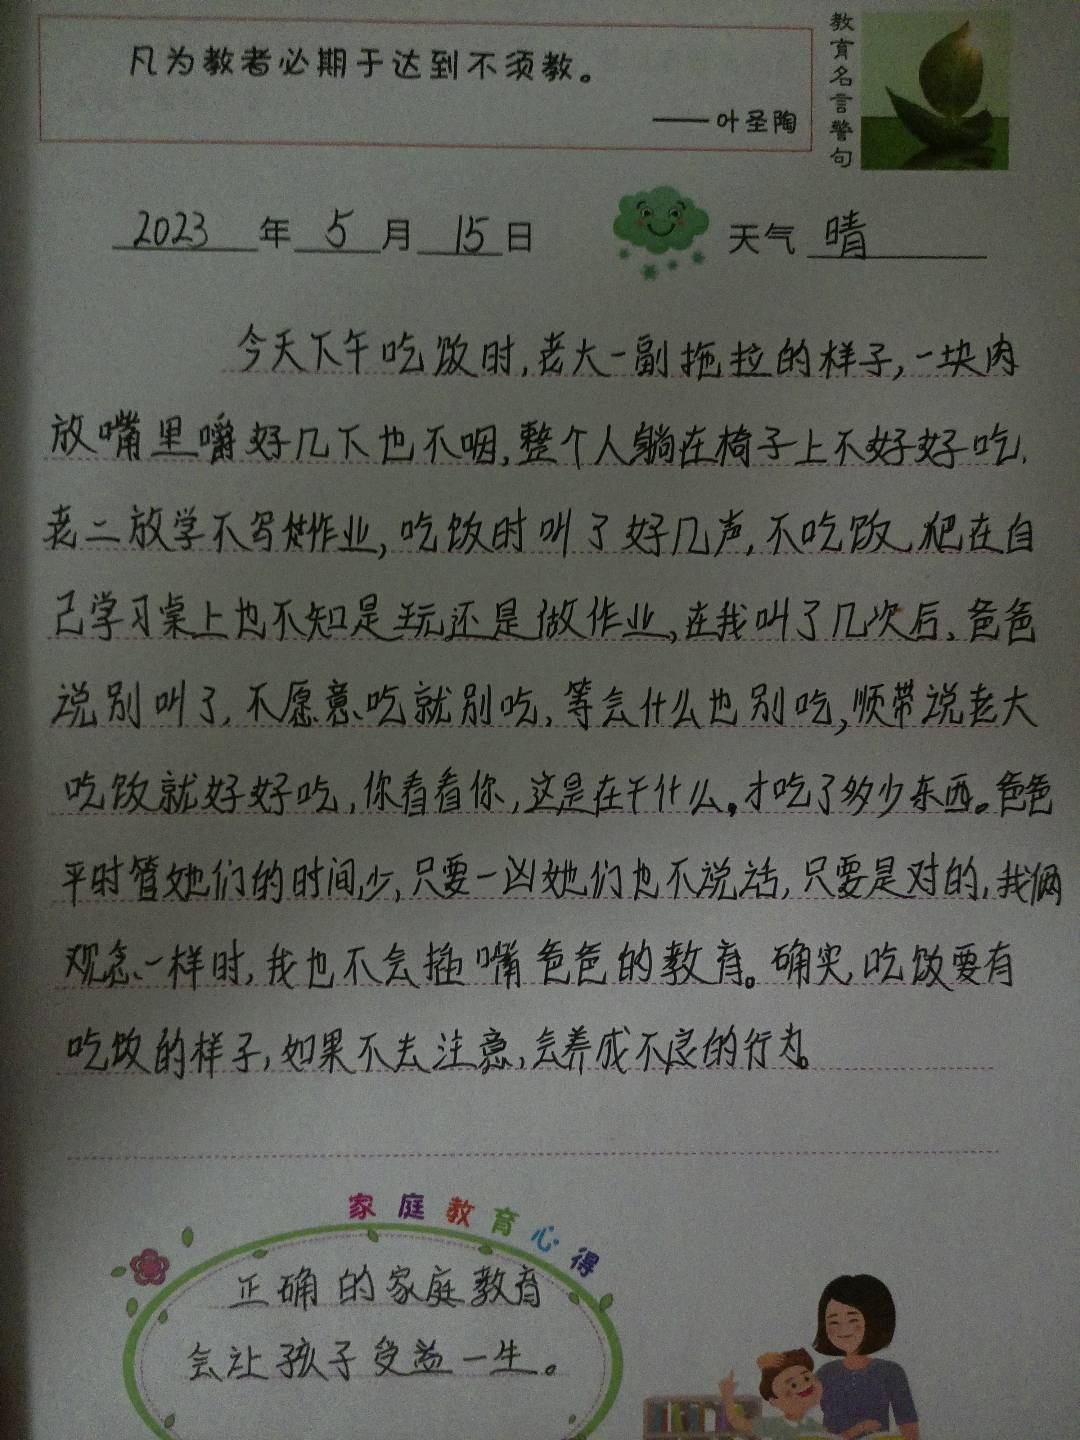 凡为教者必期于达到不须教。
——叶圣陶
教育名言警句
2023年5月15日 天气 晴
今天下午吃饭时,老大一副拖拉的样子,一块肉
放嘴里嚼好几下也不咽,整个人躺在椅子上不好好吃,
老二放学不写作业,吃饭时叫了好几声,不吃饭,爬在自
己学习桌上也不知是玩还是做作业,在我叫了几次后,爸爸
说别叫了,不愿意吃就别吃,等会什么也别吃,顺带说老大
吃饭就好好吃,你看看你,这是在干什么,才吃了多少东西。爸爸
平时管她们的时间少,只要一凶她们也不说话,只要是对的,我俩
观念一样时,我也不会插嘴爸爸的教育。确实,吃饭要有
吃饭的样子,如果不去注意,会养成不良的行为。
家庭教育心得
正确的家庭教育
会让孩子受益一生。